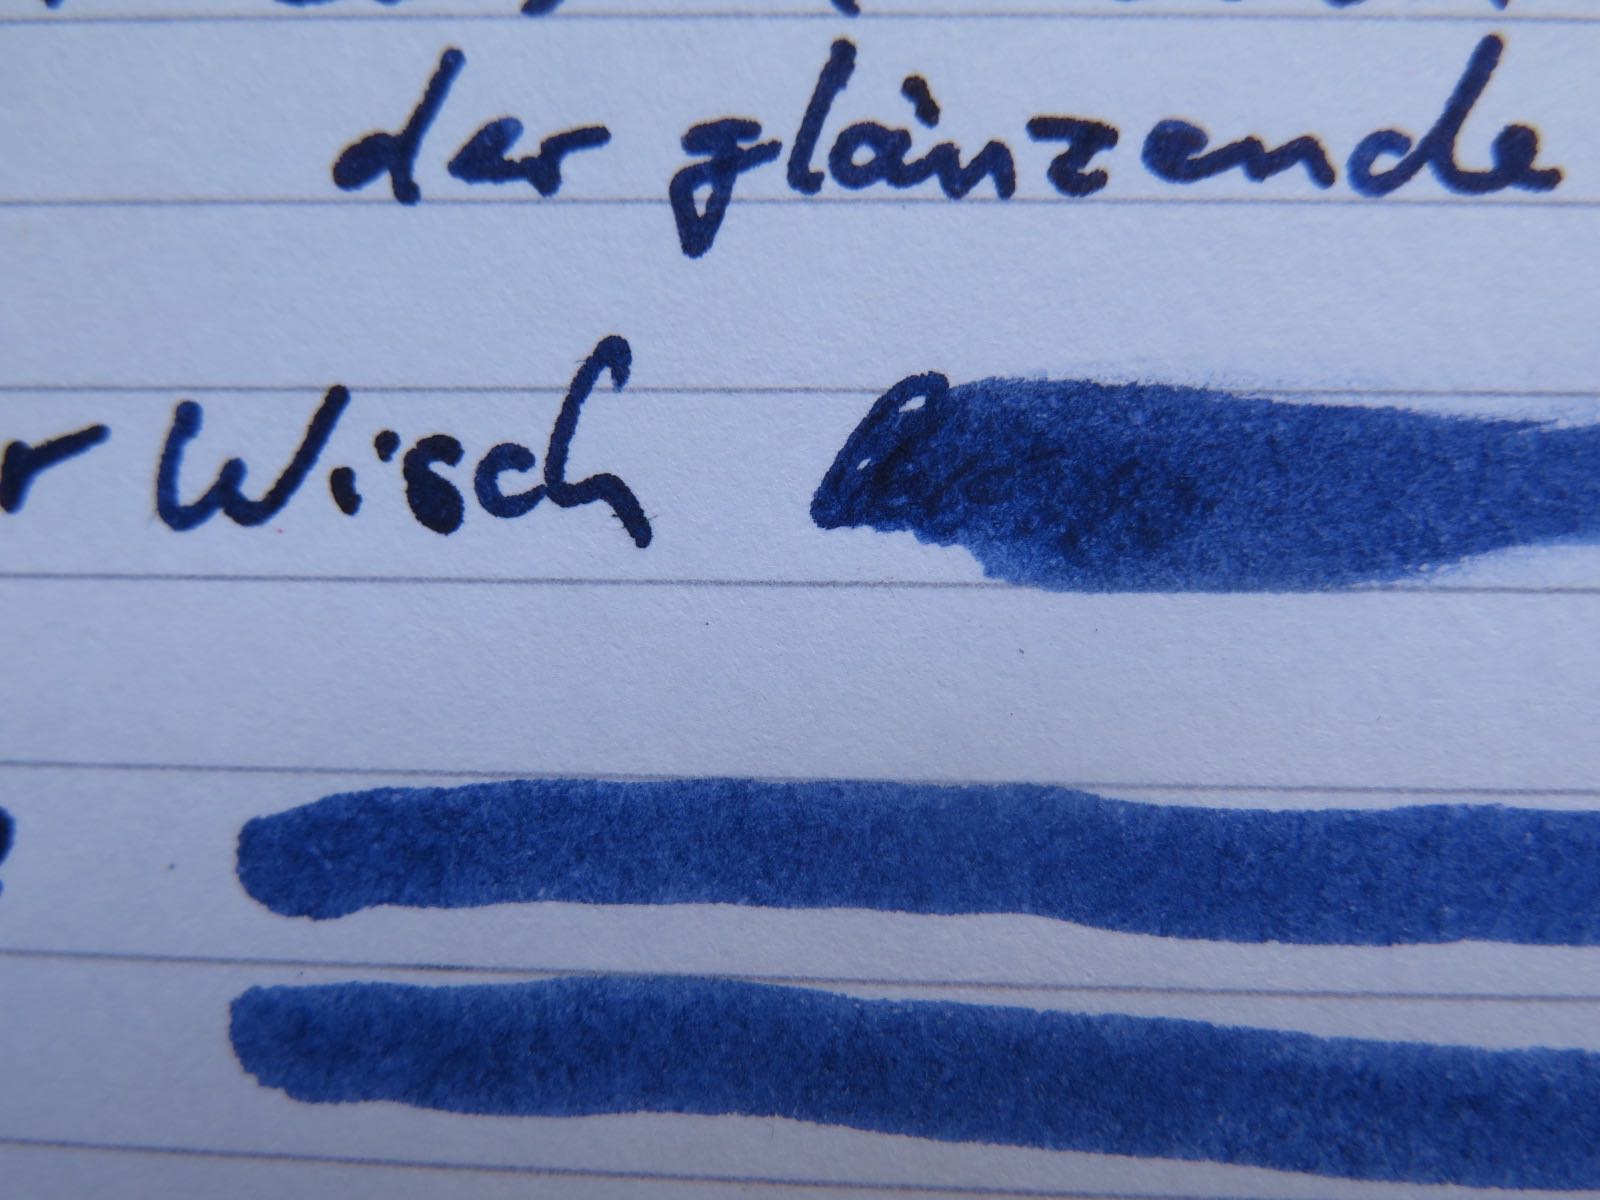 der glänzende
r Wisch